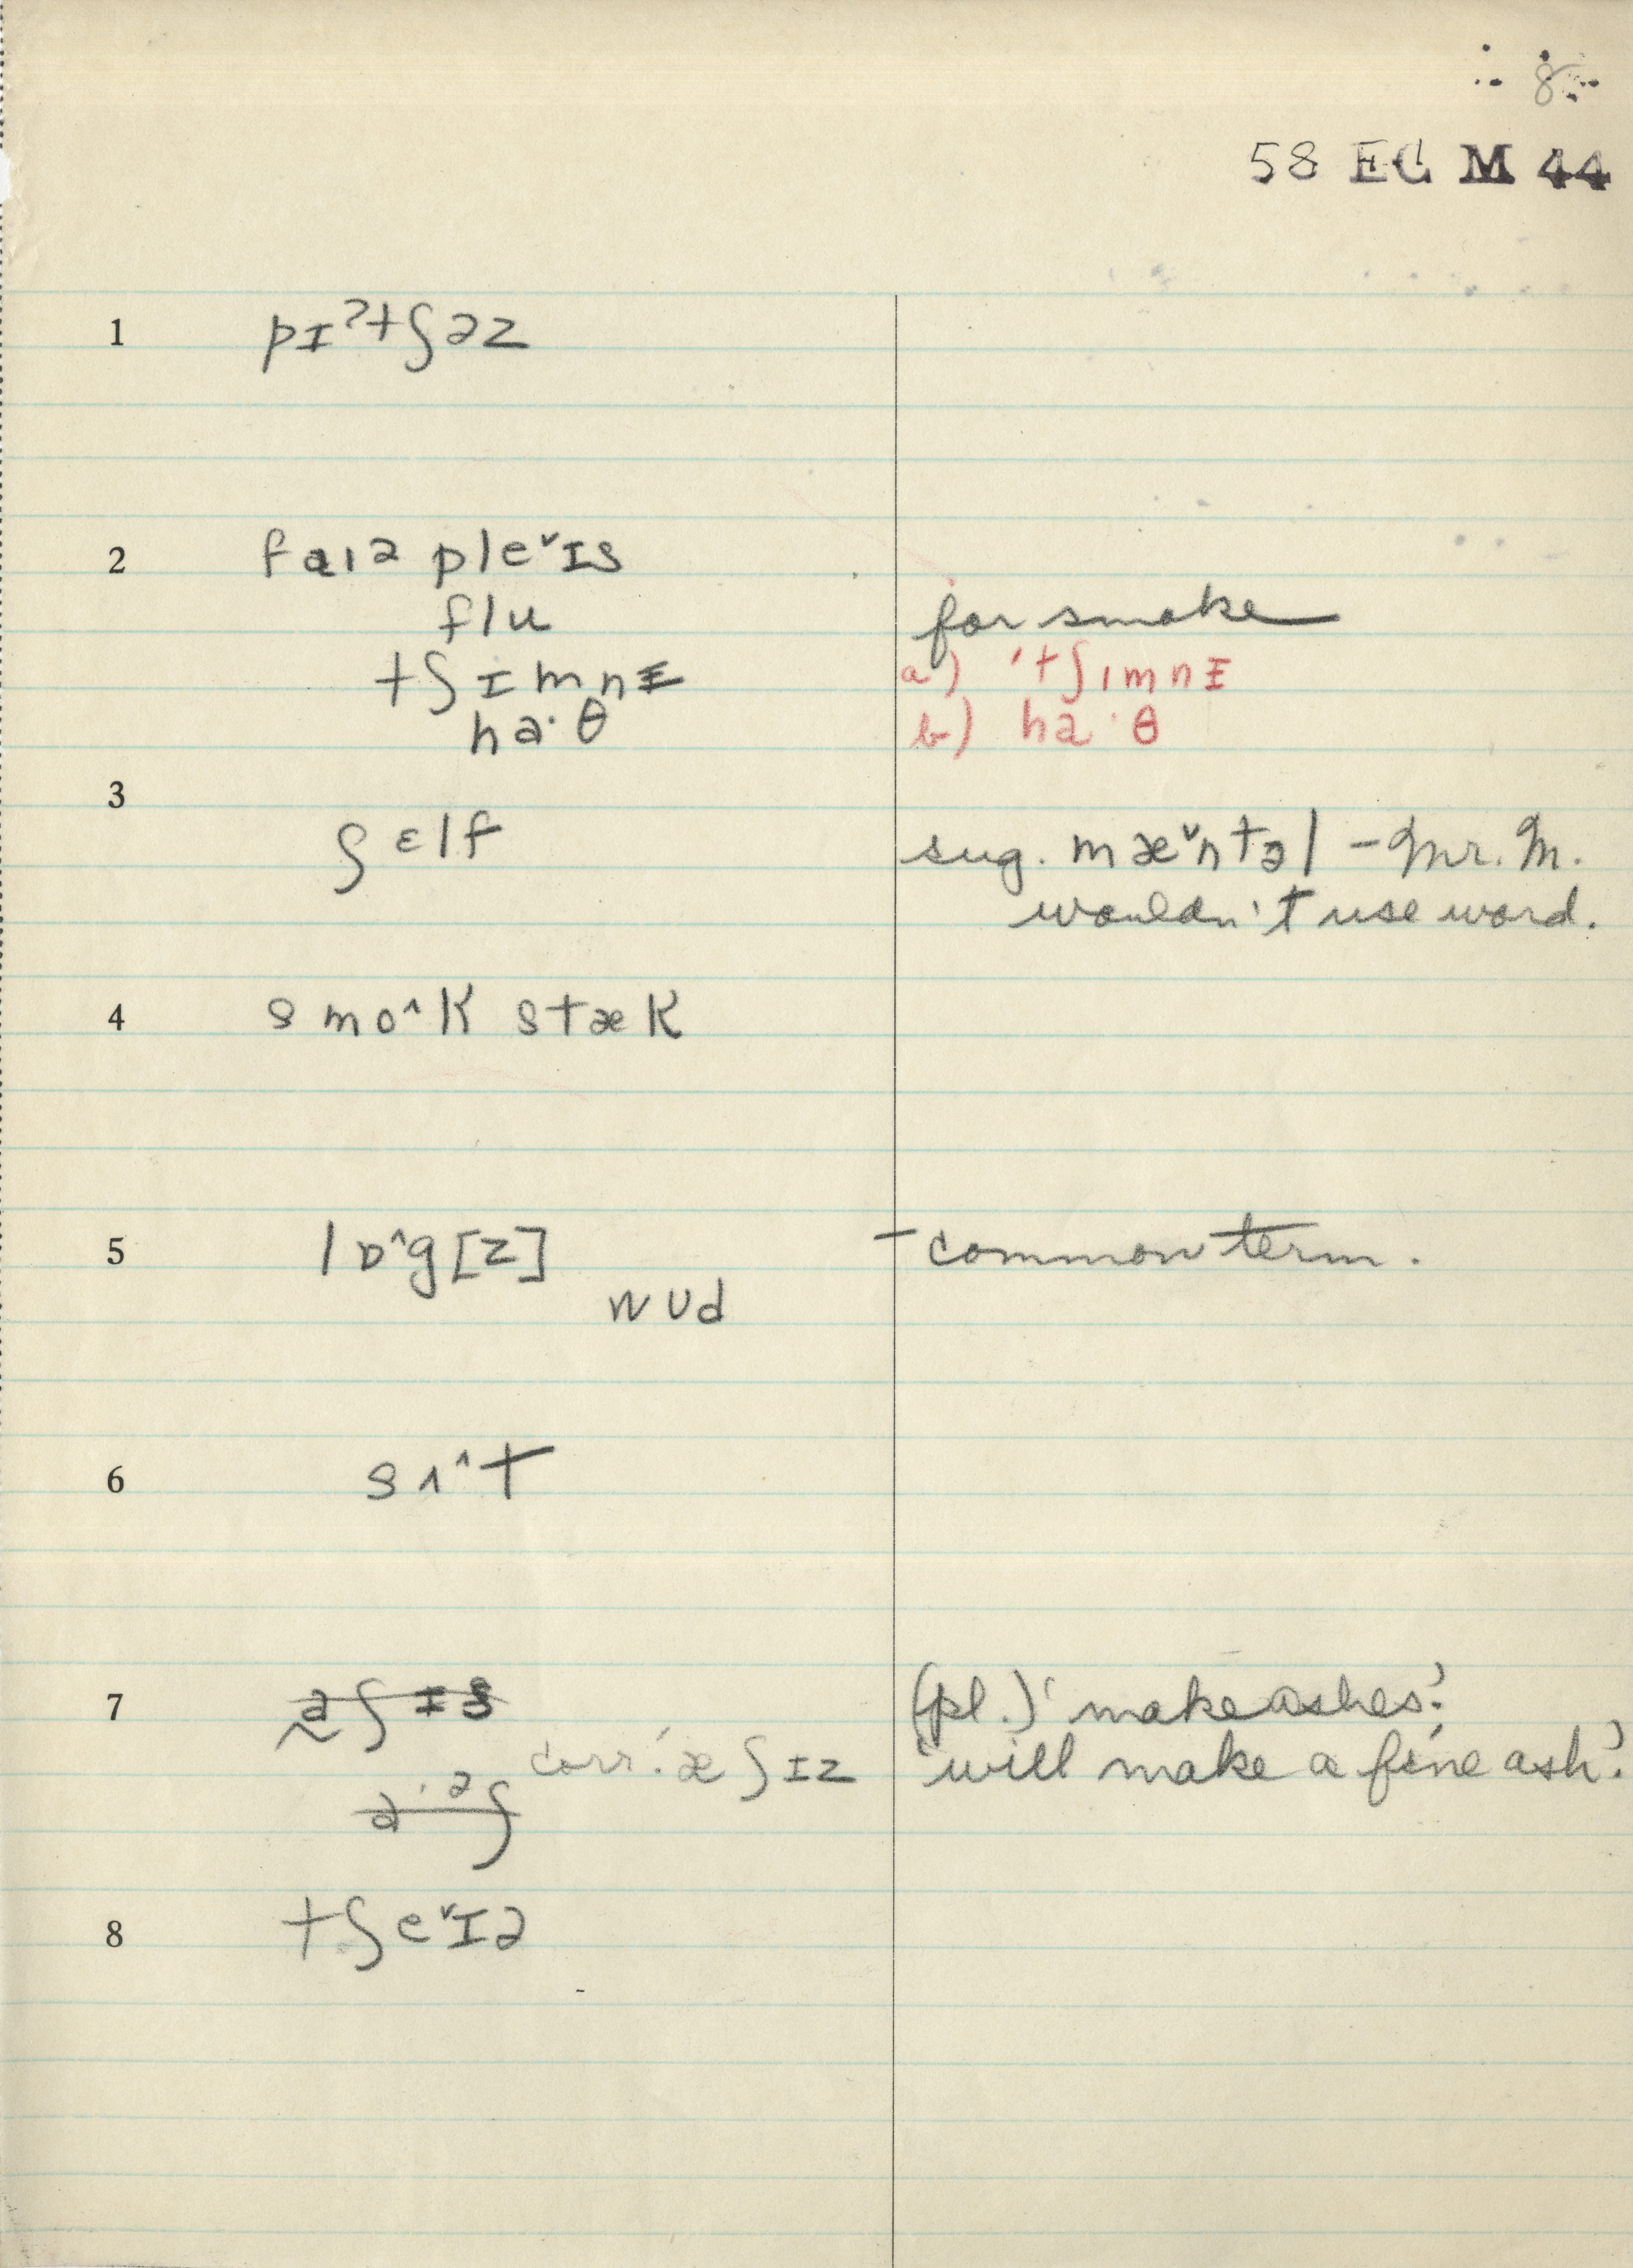 8
58 EC M 44
1 pɪˀtʃəz
2 faɪə pleˇɪs
flu for smoke
tʃɪmnɪ a) 'tʃɪmnɪ
ha·θ b) ha·θ
3
ʃɛlf sug. mæˇntəl – Mr. M.
wouldn't use word.
4 smoˆk stæk
5 lɒˆg[z] – common term.
wʊd
6 sʌˆt
7 (pl.) 'make ashes.'
corr. æʃɪz 'will make a fine ash.'
8 tʃeˇɪə